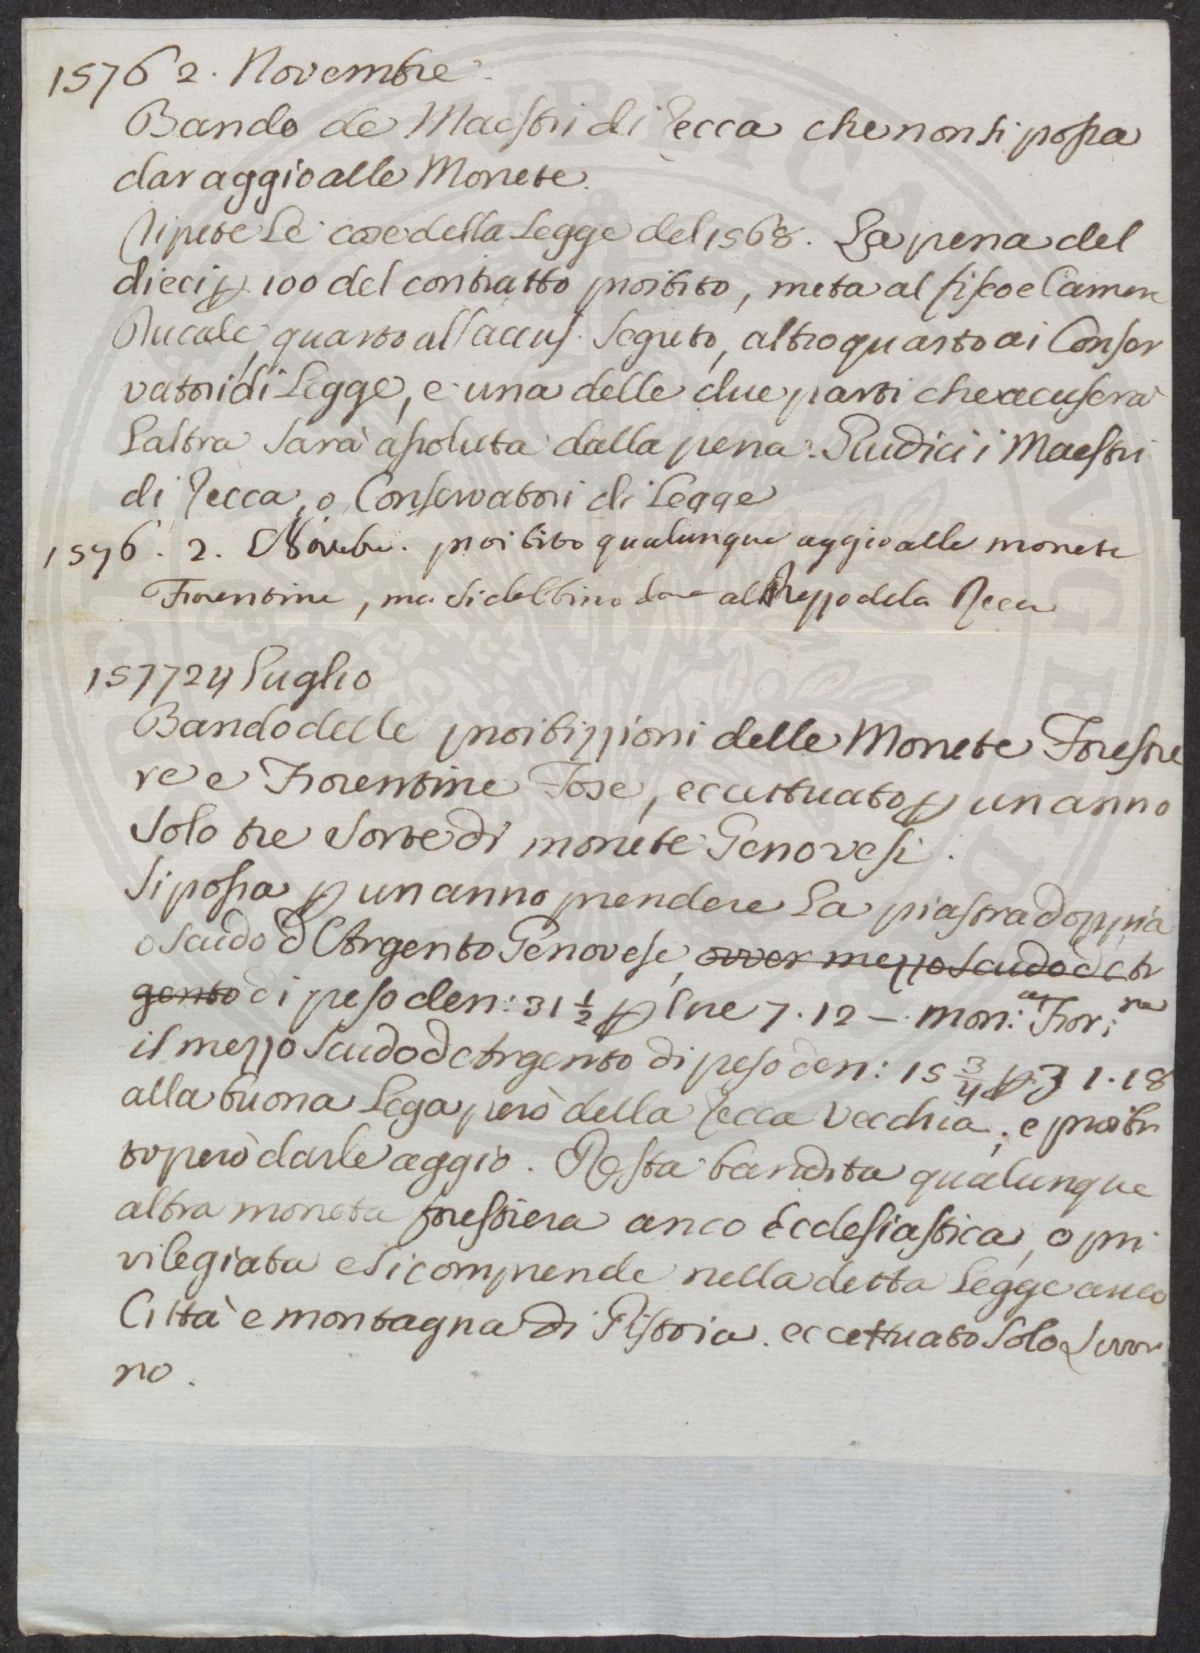 1576 2. Novembre
Bando de Maestri di Zecca che non si possa
dar aggio alle Monete.
Ripete le cose della Legge del 1568. La pena del
dieci p 100 del contratto proibito, meta al fisco e Camera
Ducale, quarto all'accus. segreto, altro quarto ai Conser
vatori di Legge, e una delle due parti che accuserà
l'altra sarà assoluta dalla pena. Giudici i Maestri
di Zecca, o Conservatori di Legge
1576. 2. Novembre. proibito qualunque aggio alle monete
Fiorentine, ma si debbino dare al Prezzo dela Zecca
1577 24 Luglio
Bando delle proibizzioni delle Monete Forestie
re e Fiorentine Tose, eccettuato p un anno
solo tre sorte di monete Genovesi.
Si possa p un anno prendere la piastra doppia
o scudo d'Argento Genovese, ovver mezzo scudo d'Ar
gento di peso den: 31 1/2 p lire 7. 12 – mon: Fior:na
il mezzo scudo d'Argento di peso den: 15 3/4 p 3 1. 18
alla buona Lega però della Zecca vecchia; e proibi
to però darle aggio. Resta bandita qualunque
altra moneta forestiera anco Ecclesiastica, o pri
vilegiata e si comprende nella detta Legge anco
Città e montagna di Pistoia. eccettuato solo Livor
no.